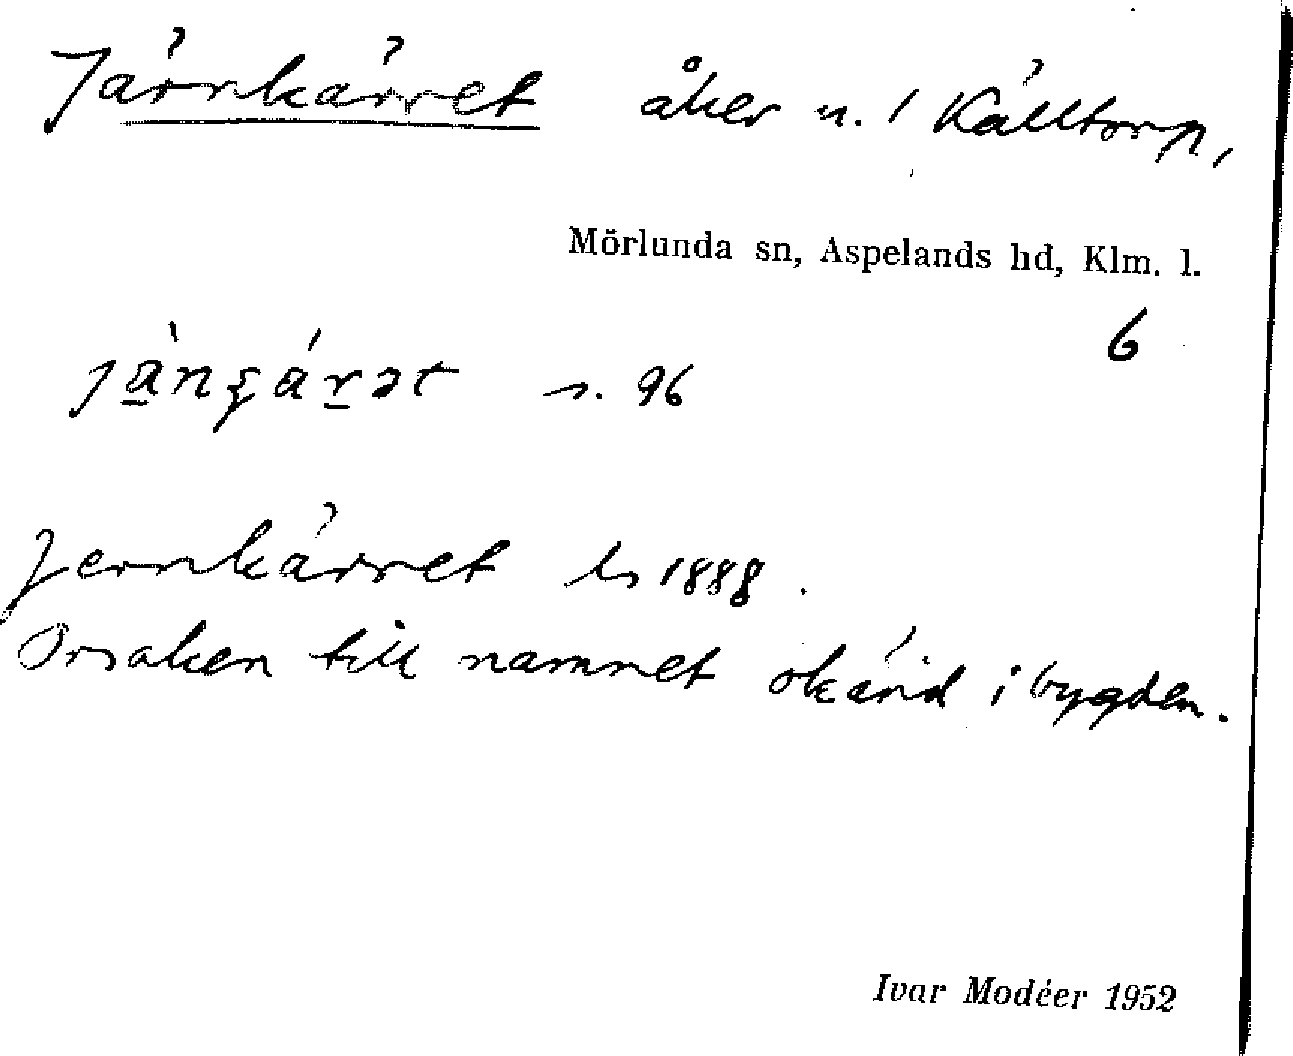 Järnkärret åker n. 1 Källtorp,
Mörlunda sn, Aspelands hd, Klm. l.
6
s. 96
Jernkärret ls 1888.
Orsaken till namnet okänd i bygden.
Ivar Modéer 1952